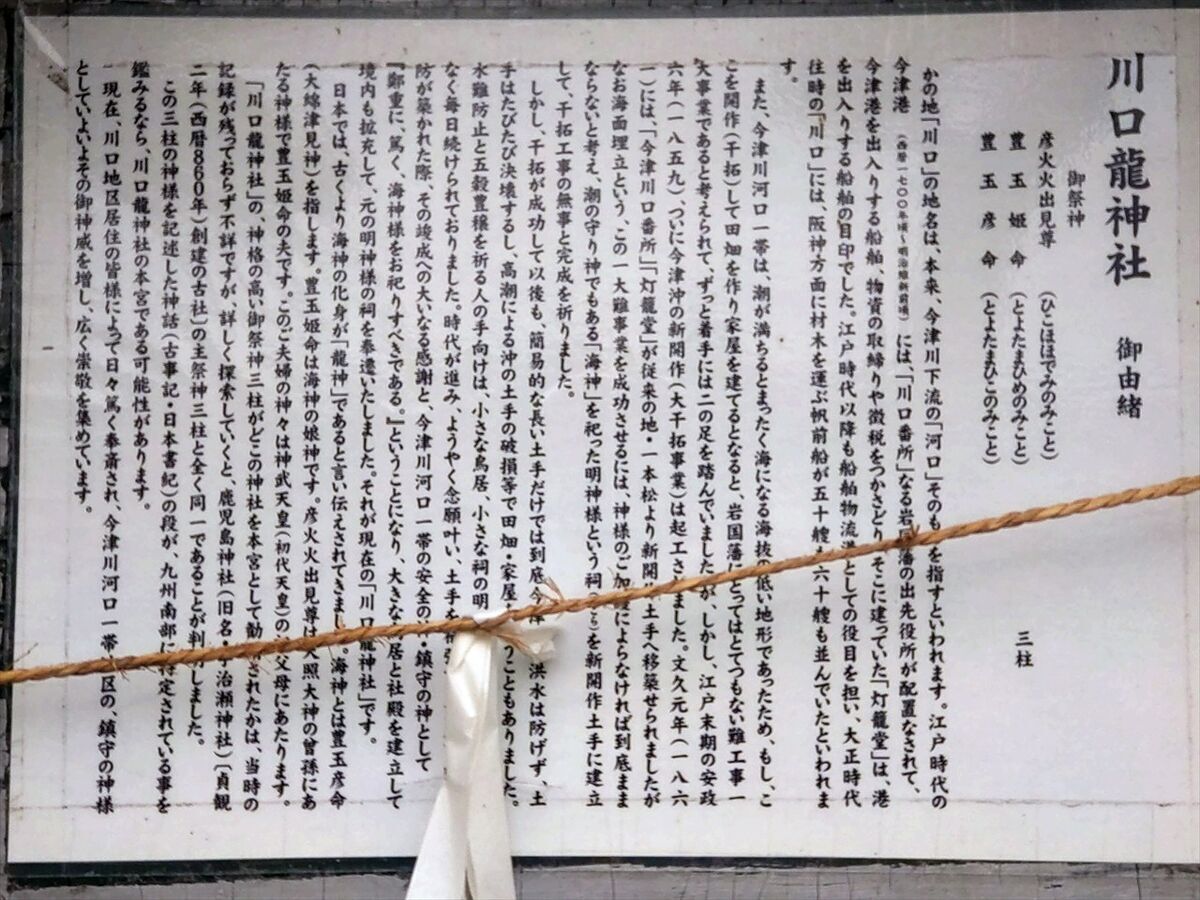 川口龍神社　御由緒
御祭神
彦火火出見尊（ひこほほでみのみこと）
豊玉姫命（とよたまひめのみこと）　三柱
豊玉彦命（とよたまひこのみこと）
かの地「川口」の地名は、本来、今津川下流の「河口」そのも　を指すといわれます。江戸時代の
今津港（西暦一七〇〇年頃～明治維新前頃）には、「川口番所」なる岩　藩の出先役所が配置なされて、
今津港を出入りする船舶、物資の取締りや徴税をつかさどり　そこに建っていた「灯籠堂」は、港
を出入りする船舶の目印でした。江戸時代以降も船舶物流港としての役目を担い、大正時代
往時の「川口」には、阪神方面に材木を運ぶ帆前船が五十艘も六十艘も並んでいたといわれま
す。
また、今津川河口一帯は、潮が満ちるとまったく海になる海抜の低い地形であったため、もし、こ
こを開作（干拓）して田畑を作り家屋を建てるとなると、岩国藩にとってはとてつもない難工事一
大事業であると考えられて、ずっと着手には二の足を踏んでいましたが、しかし、江戸末期の安政
六年（一八五九）、ついに今津沖の新開作（大干拓事業）は起工さ　ました。文久元年（一八六
一）には、「今津川口番所」「灯籠堂」が従来の地・一本松より新開　土手へ移築せられましたが
なお海面埋立という、この一大難事業を成功させるには、神様のご加　によらなければ到底まま
ならないと考え、潮の守り神でもある「海神」を祀った明神様という祠（　）を新開作土手に建立
して、干拓工事の無事と完成を祈りました。
しかし、干拓が成功して以後も、簡易的な長い土手だけでは到底今津　洪水は防げず、土
手はたびたび決壊するし、高潮による沖の土手の破損等で田畑・家屋　うこともありました。
水難防止と五穀豊穣を祈る人の手向けは、小さな鳥居、小さな祠の明
なく毎日続けられておりました。時代が進み、ようやく念願叶い、土手を
防が築かれた際、その竣成への大いなる感謝と、今津川河口一帯の安全の　・鎮守の神として
『鄭重に、篤く、海神様をお祀りすべきである。』ということになり、大きな　居と社殿を建立して
境内も拡充して、元の明神様の祠を奉遷いたしました。それが現在の「川口龍神社」です。
日本では、古くより海神の化身が「龍神」であると言い伝えされてきまし　。海神とは豊玉彦命
（大綿津見神）を指します。豊玉姫命は海神の娘神です。彦火火出見尊は天照大神の曾孫にあ
たる神様で豊玉姫命の夫です。このご夫婦の神々は神武天皇（初代天皇）の　父母にあたります。
「川口龍神社」の、神格の高い御祭神三柱がどこの神社を本宮として勧　されたかは、当時の
記録が残っておらず不詳ですが、詳しく探索していくと、鹿児島神社（旧名・　治瀬神社）〔貞観
二年（西暦860年）創建の古社〕の主祭神三柱と全く同一であることが判　しました。
この三柱の神様を記述した神話（古事記・日本書紀）の段が、九州南部に特定されている事を
鑑みるなら、川口龍神社の本宮である可能性があります。
現在、川口地区居住の皆様によって日々篤く奉斎され、今津川河口一帯　区の、鎮守の神様
としていよいよその御神威を増し、広く崇敬を集めています。